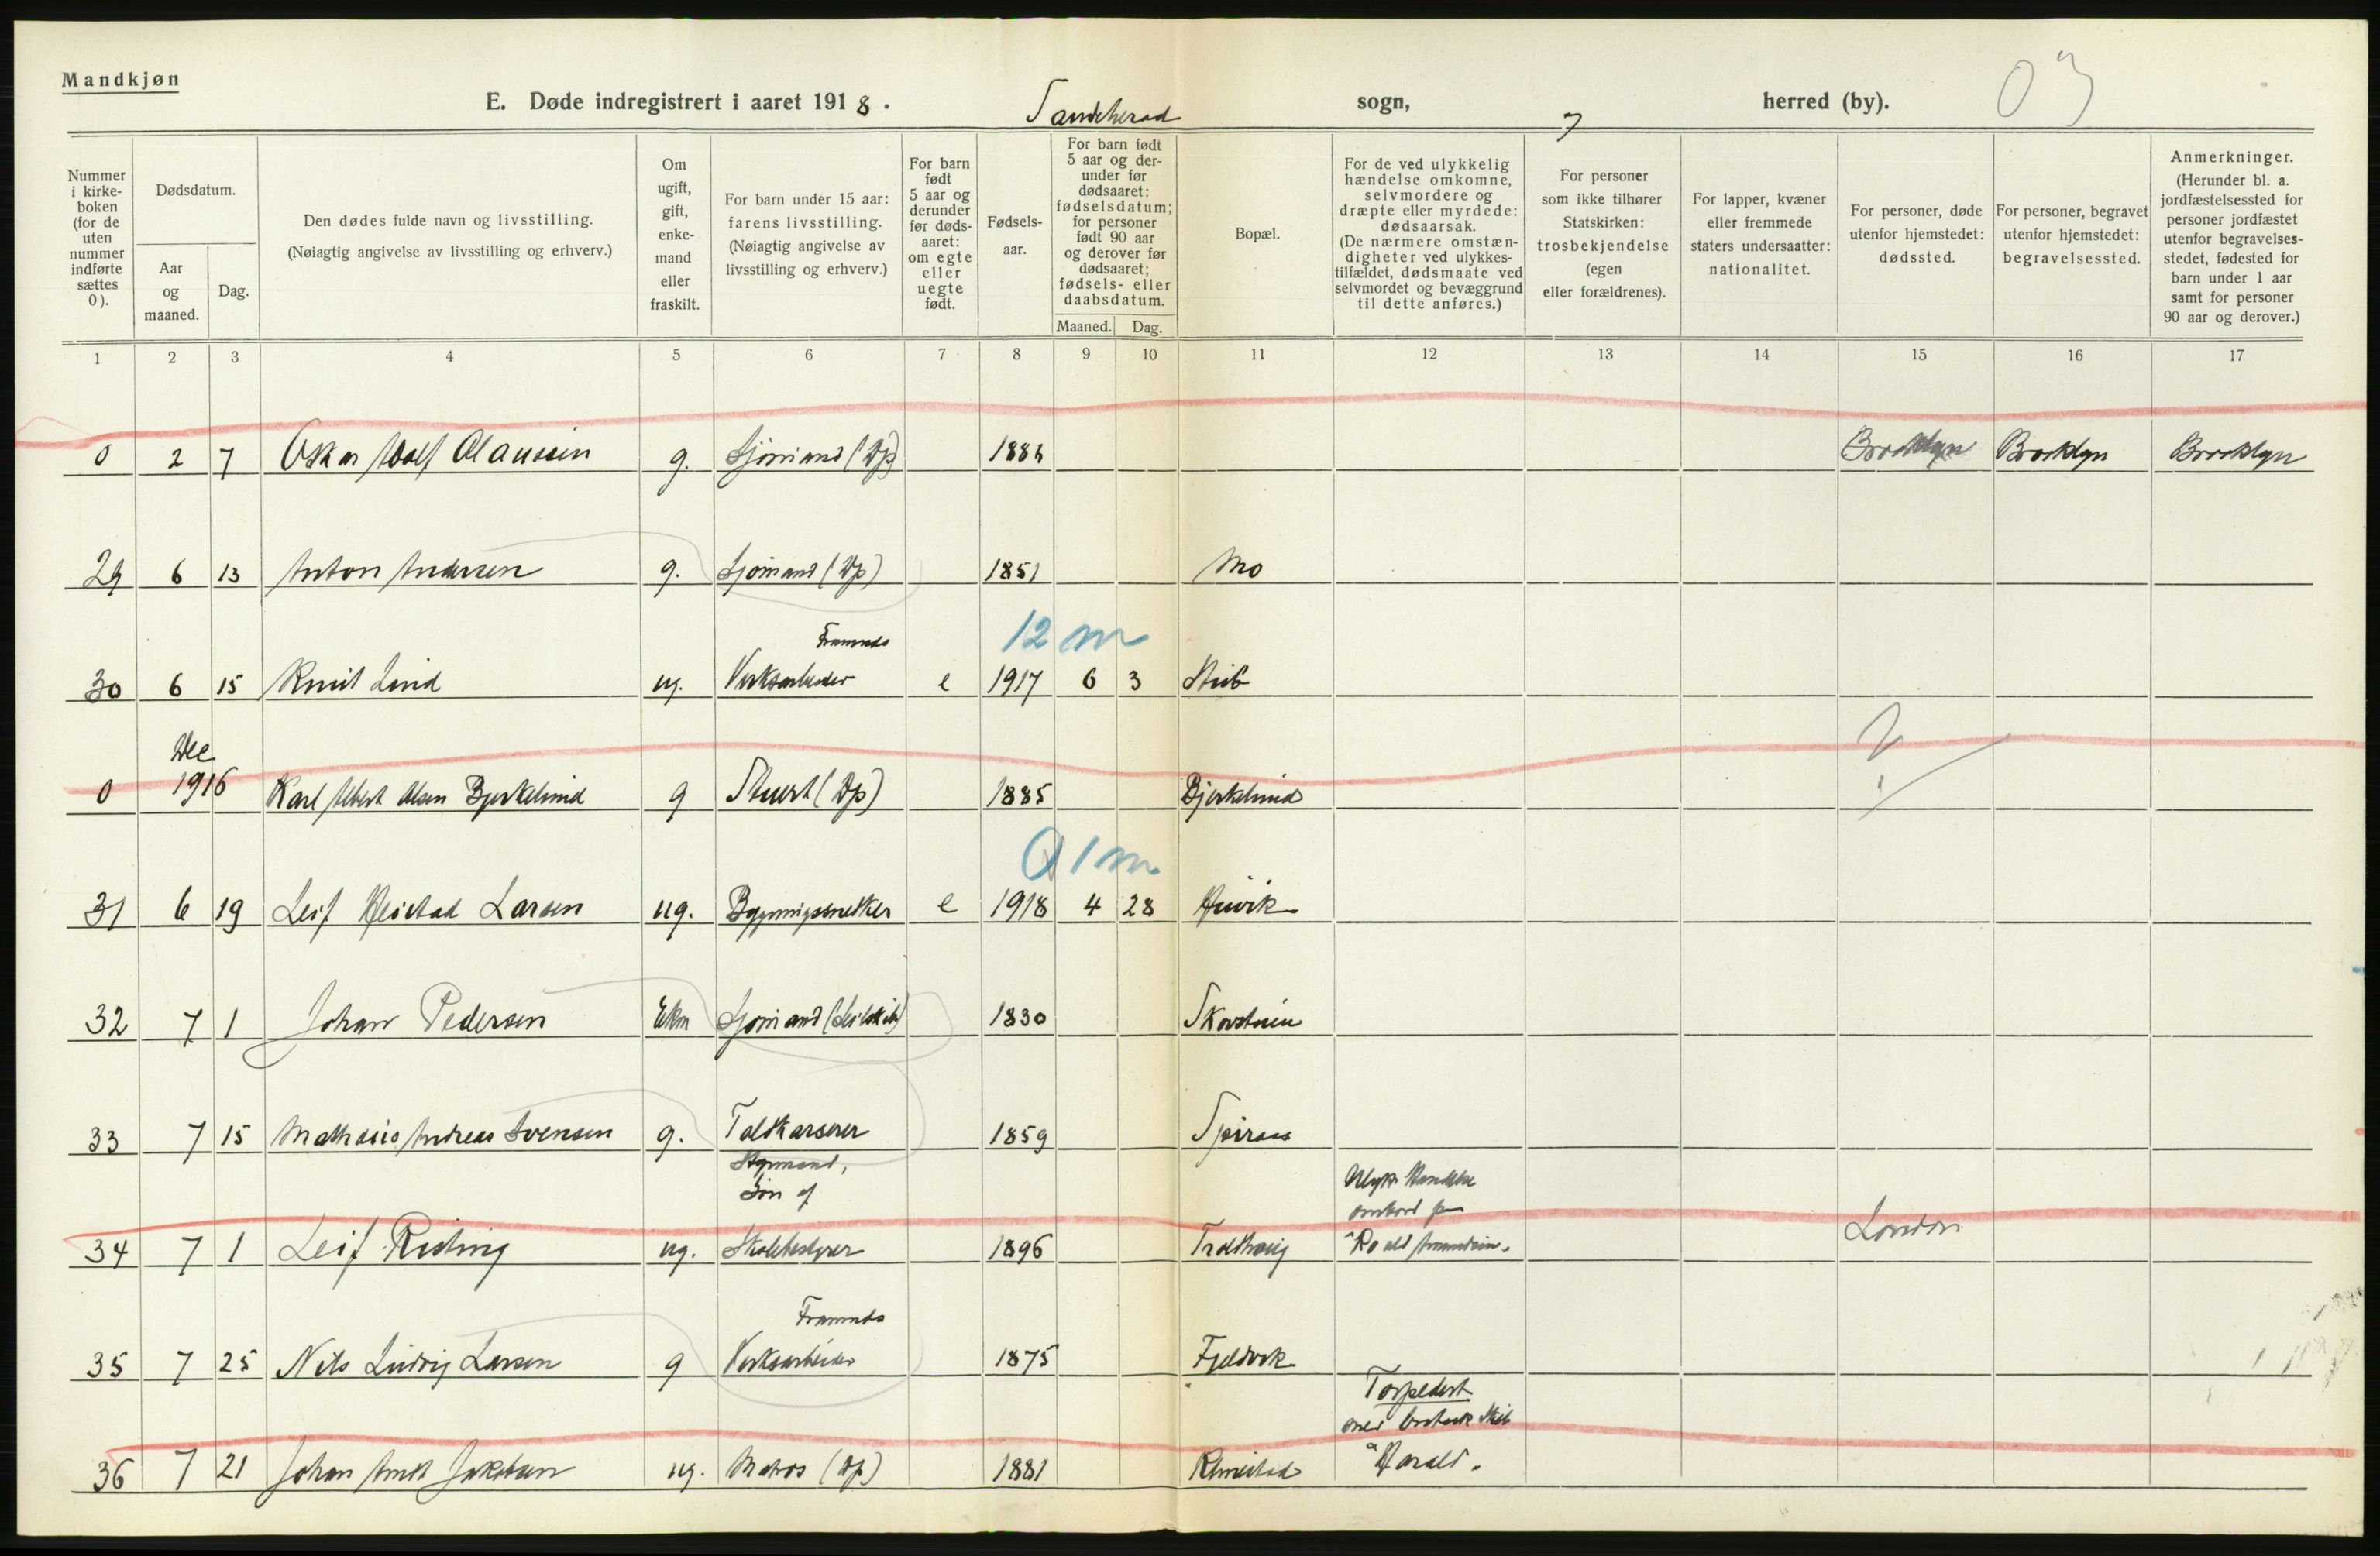 Mandkjøn
E. Døde indregistrert i aaret 1918. Sandeherad sogn, herred (by).
03
Nummer i kirke-boken (for de uten nummer indførte sættes 0).
Dødsdatum.
Aar og maaned.
Dag.
Den dødes fulde navn og livsstilling.
(Nøiagtig angivelse av livsstilling og erhverv.)
Om ugift, gift, enke-mand eller fraskilt.
For barn under 15 aar: farens livsstilling.
(Nøiagtig angivelse av livsstilling og erhverv.)
For barn født 5 aar og derunder før døds-aaret: om egte eller uegte født.
Fødsels-aar.
For barn født 5 aar og der-under før dødsaaret: fødselsdatum; for personer født 90 aar og derover før dødsaaret; fødsels- eller daabsdatum.
Maaned.
Dag.
Bopæl.
For de ved ulykkelig hændelse omkomne, selvmordere og dræpte eller myrdede: dødsaarsak.
(De nærmere omstæn-digheter ved ulykkes-tilfældet, dødsmaate ved selvmordet og bevæggrund til dette anføres.)
For personer som ikke tilhører Statskirken: trosbekjendelse (egen eller forældrenes).
For lapper, kvæner eller fremmede staters undersaatter: nationalitet.
For personer, døde utenfor hjemstedet: dødssted.
For personer, begravet utenfor hjemstedet: begravelsessted.
Anmerkninger. (Herunder bl. a. jordfæstelsessted for personer jordfæstet utenfor begravelses-stedet, fødested for barn under 1 aar samt for personer 90 aar og derover.)
1 2 3 4 5 6 7 8 9 10 11 12 13 14 15 16 17
0 2 7 Oskar Adolf Olaussen g. Sjømand (Dp) Brooklyn Brooklyn Brooklyn
29 6 13 Anton Andersen g. Sjømand (Dp) 1851 Mo
Framnæs 12 m
30 6 15 Knut Lind ug. Verksarbeider e 1917 6 3 Stub
Dec
0 1916 Karl Albert Olsen Bjerkelund g Stuert (Dp) 1885 Bjerkelund
1 m
31 6 19 Leif Heistad Larsen ug. Bygningssnekker e 1918 4 28 Huvik
32 7 1 Johan Pedersen Ekm Sjømand (Seilskib) 1830 Skovstuen
33 7 15 Mathæus Andreas Svensen g. Toldkasserer 1859 Spiraas
Styrmand, Ulyk. Hændelse
Søn af ombord paa
34 7 1 Leif Risting ug. Skolebestyrer 1896 Troldhaug "Roald Amundsen". London
Framnæs
35 7 25 Nils Ludvig Larsen g Verksarbeider 1875 Fjeldvik
Torpedert
med
36 7 21 Johan Arndt Jakobsen ug. Matros (Dp) 1881 Klinestad "Harald".